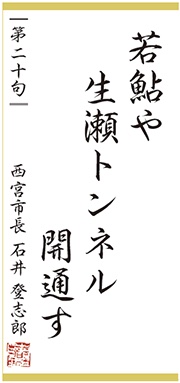 若鮎や
生瀬トンネル
開通す
第二十句
西宮市長 石井 登志郎